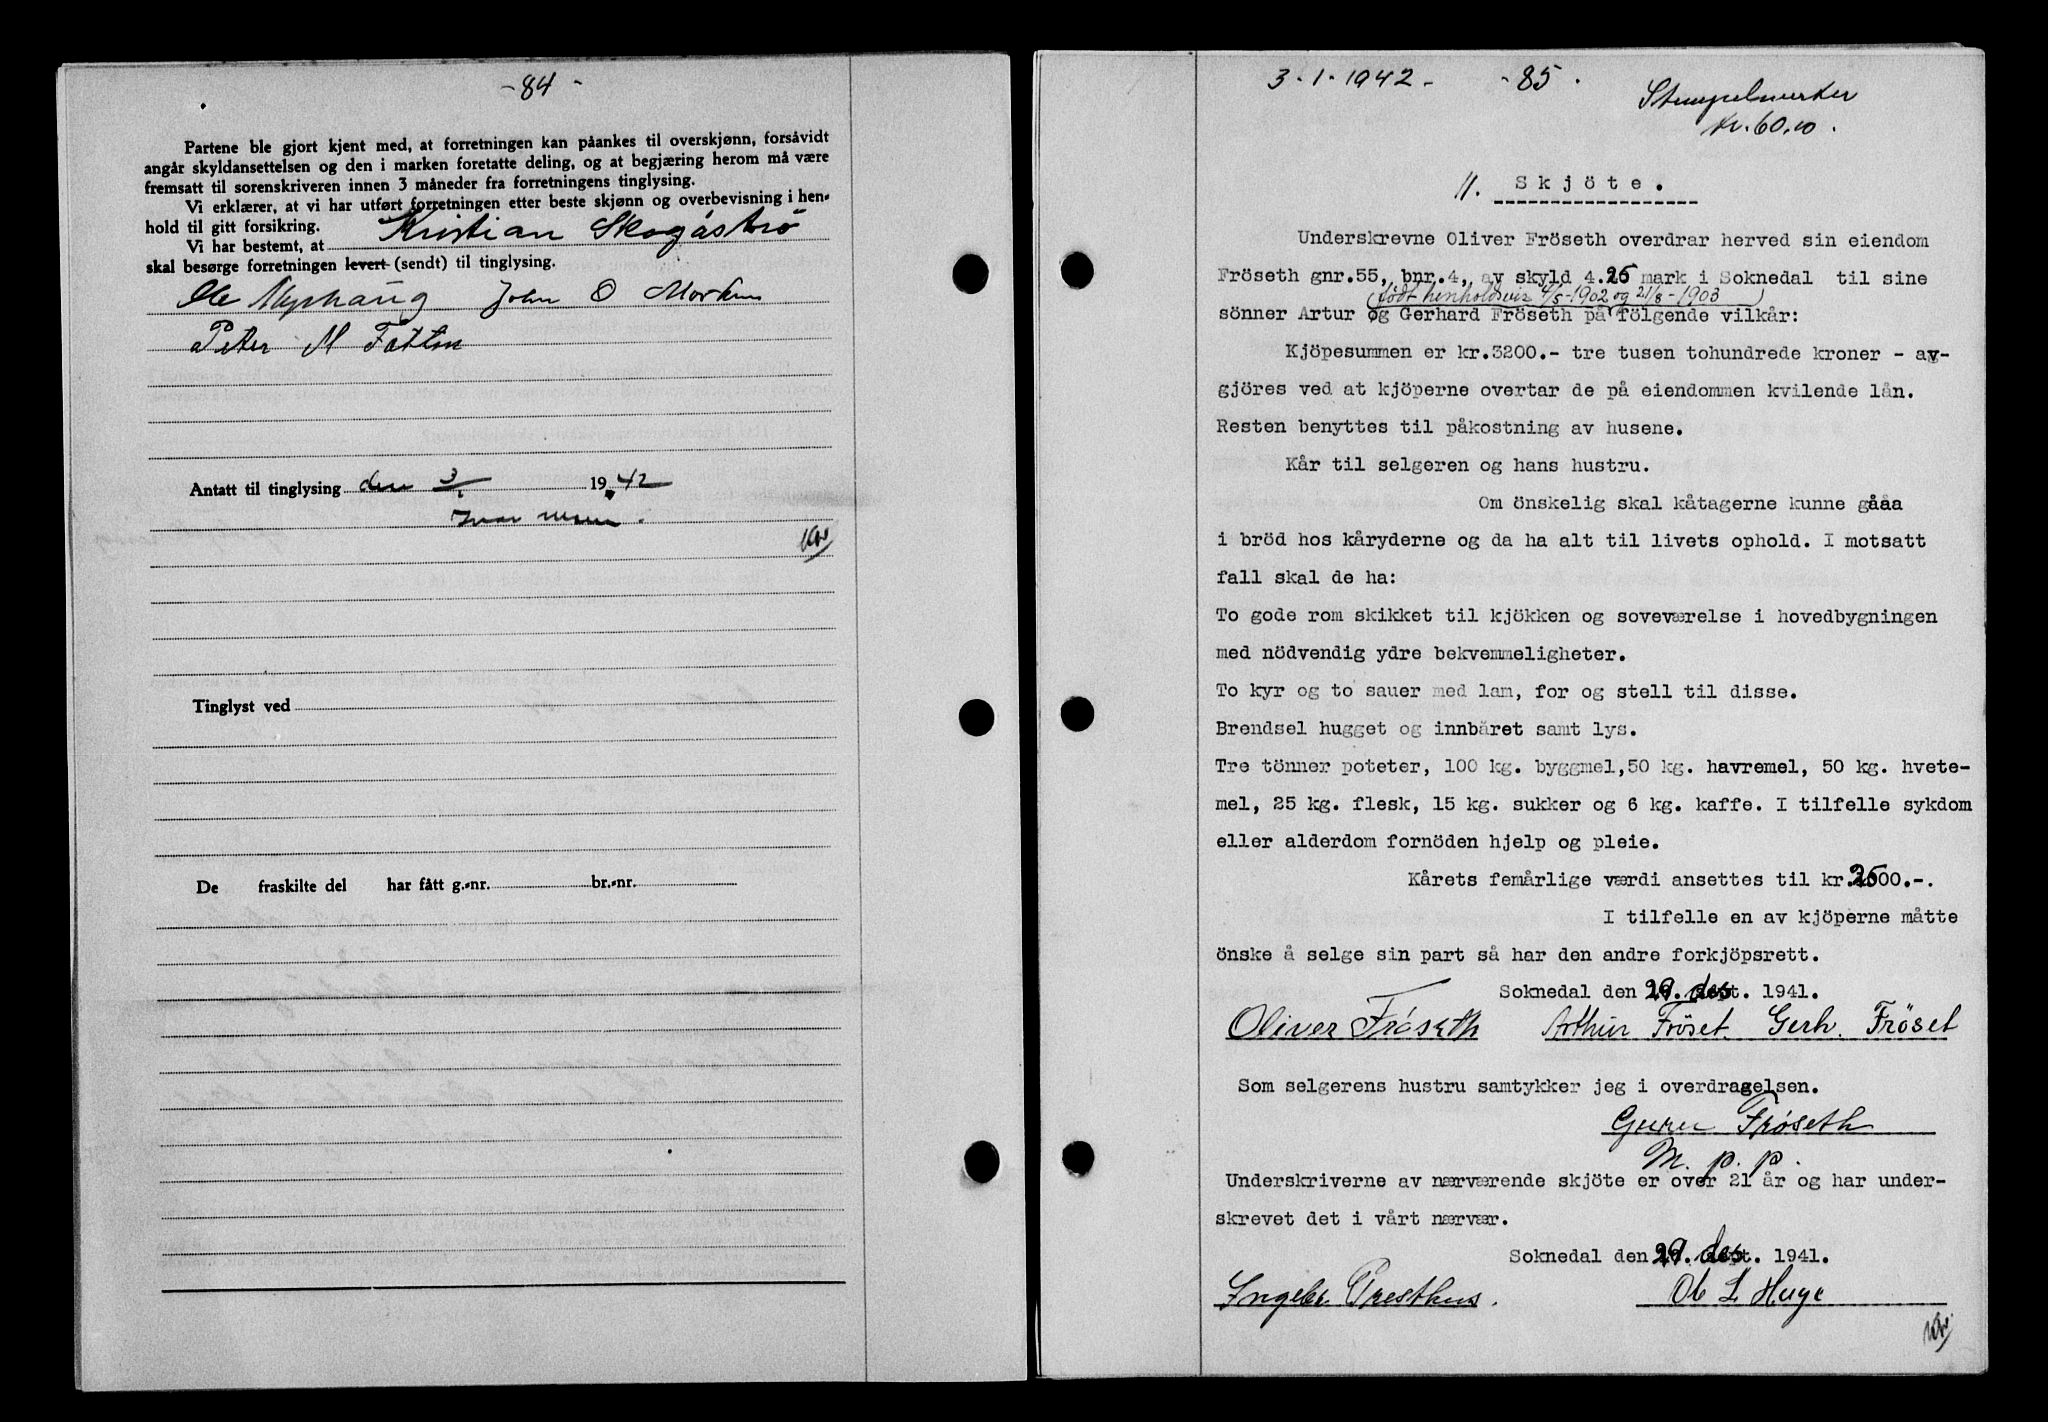 - 84 -
Partene ble gjort kjent med, at forretningen kan påankes til overskjønn, forsåvidt
angår skyldansettelsen og den i marken foretatte deling, og at begjæring herom må være
fremsatt til sorenskriveren innen 3 måneder fra forretningens tinglysing.
Vi erklærer, at vi har utført forretningen etter beste skjønn og overbevisning i hen-
hold til gitt forsikring.
Vi har bestemt, at Kristian Skogåstrø
skal besørge forretningen levert (sendt) til tinglysing.
Ole John O
Peter M
Antatt til tinglysing den 3/1 1942
Tinglyst ved
De fraskilte del har fått g.-nr. br.-nr.
3-1-1942 - - 85 .
Stempelmerker
kr. 60,10.
11. Skjöte.
Underskrevne Oliver Fröseth overdrar herved sin eiendom
Fröseth gnr.55, bnr.4, av skyld 4.26 mark i Soknedal til sine
(født henholdsvis 4/5-1902 og 21/8-1903)
sönner Artur og Gerhard Fröseth på fölgende vilkår:
Kjöpesummen er kr.3200.- tre tusen tohundrede kroner - av-
gjöres ved at kjöperne overtar de på eiendommen kvilende lån.
Resten benyttes til påkostning av husene.
Kår til selgeren og hans hustru.
Om önskelig skal kåtagerne kunne gååa
i bröd hos kåryderne og da ha alt til livets ophold. I motsatt
fall skal de ha:
To gode rom skikket til kjökken og soveværelse i hovedbygningen
med nödvendig ydre bekvemmeligheter.
To kyr og to sauer med lam, for og stell til disse.
Brendsel hugget og innbåret samt lys.
Tre tönner poteter, 100 kg. byggmel,50 kg. havremel, 50 kg. hvete-
mel, 25 kg. flesk, 15 kg. sukker og 6 kg. kaffe. I tilfelle sykdom
eller alderdom fornöden hjelp og pleie.
Kårets femårlige værdi ansettes til kr.2500.-.
I tilfelle en av kjöperne måtte
önske å selge sin part så har den andre forkjöpsrett.
Soknedal den 29. des. 1941.
Oliver Fröseth Arthur Fröset. Gerh. Fröset
Som selgerens hustru samtykker jeg i overdragelsen.
Guru Frøseth
M. p. p.
Underskriverne av nærværende skjöte er over 21 år og har under-
skrevet det i vårt nærvær.
Soknedal den 29. des. 1941.
Ingebr. Presthus. Ole L Huge